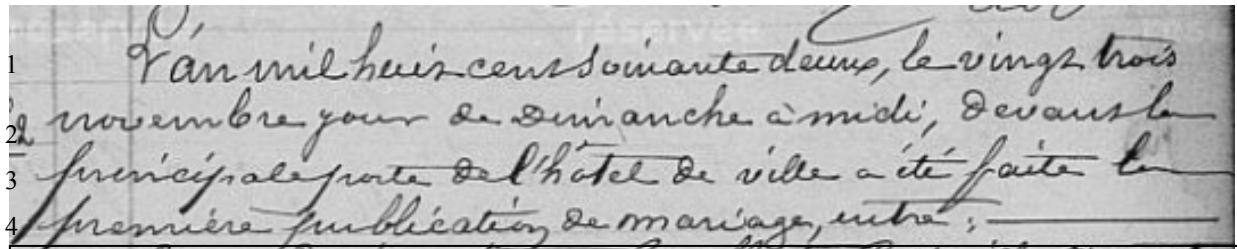 1 L'an mil huit cent soixante deux, le vingt trois
2 novembre jour de Dimanche à midi, devant la
3 principale porte de l'hôtel de ville a été faite la
4 première publication de mariage, entre :